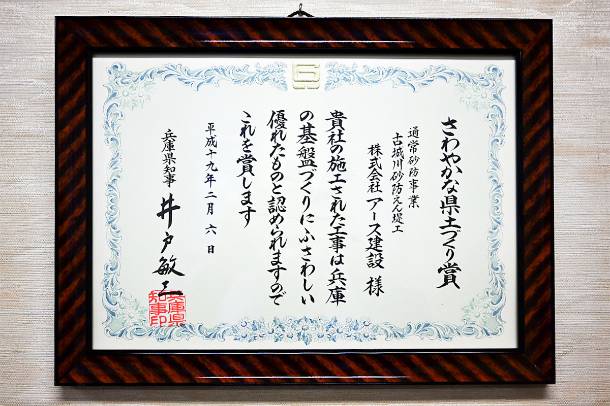 さわやかな県土づくり賞
通常砂防事業
古城川砂防えん堤工
株式会社アース建設 様
貴社の施工された工事は兵庫
の基盤づくりにふさわしい
優れたものと認められますので
これを賞します
平成十九年二月六日
兵庫県知事 井戸敏三
兵庫県
知事印